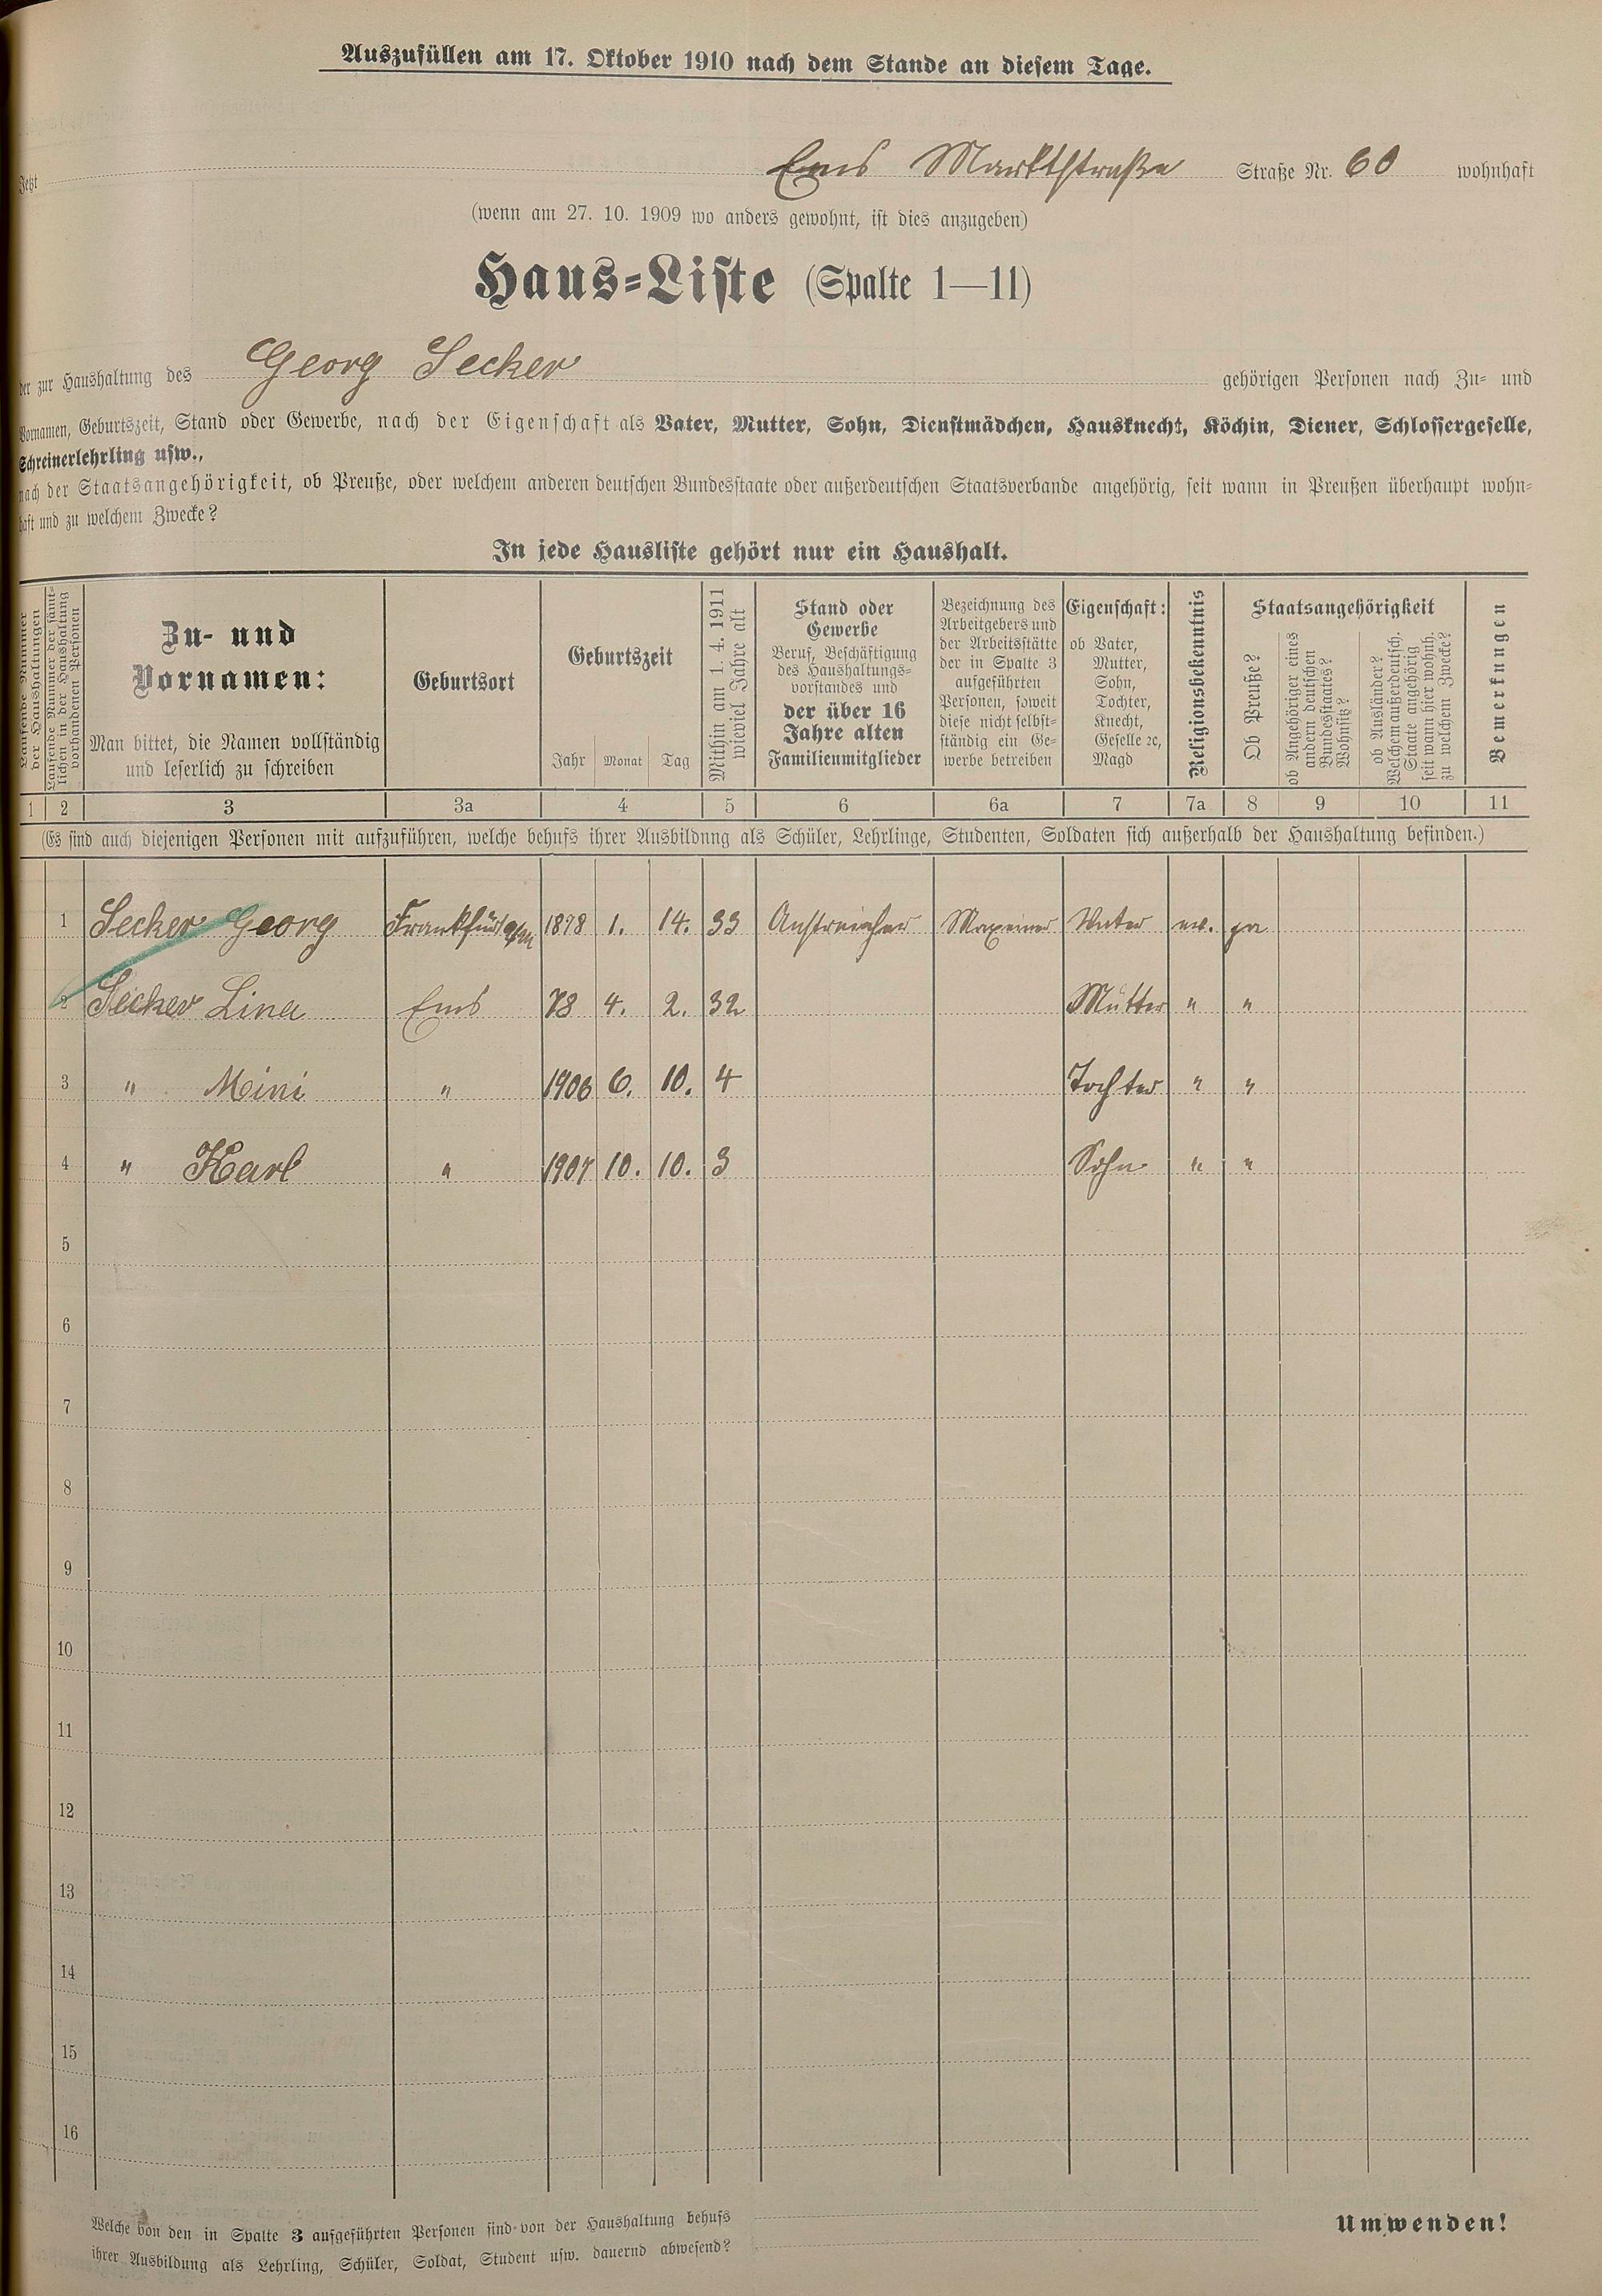 Auszufüllen am 17. Oktober 1910 nach dem Stande an diesem Tage.
Jetzt Ems Marktstraße Straße Nr. 60 wohnhaft
(wenn am 27. 10. 1909 wo anders gewohnt, ist dies anzugeben)
Haus-Liste (Spalte 1—11)
der zur Haushaltung des Georg Secker gehörigen Personen nach Zu- und
Vornamen, Geburtszeit, Stand oder Gewerbe, nach der Eigenschaft als Vater, Mutter, Sohn, Dienstmädchen, Hausknecht, Köchin, Diener, Schlossergeselle,
Schreinerlehrling usw.,
nach der Staatsangehörigkeit, ob Preuße, oder welchem anderen deutschen Bundesstaate oder außerdeutschen Staatsverbande angehörig, seit wann in Preußen überhaupt wohn-
haft und zu welchem Zwecke?
In jede Hausliste gehört nur ein Haushalt.
Laufende Nummer
der Haushaltungen
Laufende Nummer der sämt-
lichen in der Haushaltung
vorhandenen Personen
Zu- und
Vornamen:
Man bittet, die Namen vollständig
und leserlich zu schreiben
Geburtsort
Geburtszeit
Jahr Monat Tag
Mithin am 1. 4. 1911
wieviel Jahre alt
Stand oder
Gewerbe
Beruf, Beschäftigung
des Haushaltungs-
vorstandes und
der über 16
Jahre alten
Familienmitglieder
Bezeichnung des
Arbeitgebers und
der Arbeitsstätte
der in Spalte 3
aufgeführten
Personen, soweit
diese nicht selbst-
ständig ein Ge-
werbe betreiben
Eigenschaft:
ob Vater,
Mutter,
Sohn,
Tochter,
Knecht,
Geselle ꝛc,
Magd
Religionsbekenntnis
Staatsangehörigkeit
Ob Preuße?
ob Angehöriger eines
andern deutschen
Bundesstaates?
Wohnsitz?
ob Ausländer?
Welchem außerdeutsch.
Staate angehörig
seit wann hier wohnh.
zu welchem Zwecke?
Bemerkungen
1 2 3 3a 4 5 6 6a 7 7a 8 9 10 11
(Es sind auch diejenigen Personen mit aufzuführen, welche behufs ihrer Ausbildung als Schüler, Lehrlinge, Studenten, Soldaten sich außerhalb der Haushaltung befinden.)
1 Secker Georg Frankfurt a/m 1878 1. 14. 33 Anstreicher Maxeiner Vater ev.
2 Secker Lina Ems 78 4. 2. 32 Mutter " "
3 " Mini " 1906 6. 10. 4 Tochter " "
4 " Karl " 1907 10. 10. 3 Sohn " "
5
6
7
8
9
10
11
12
13
14
15
16
Welche von den in Spalte 3 aufgeführten Personen sind von der Haushaltung behufs
ihrer Ausbildung als Lehrling, Schüler, Soldat, Student usw. dauernd abwesend?
Umwenden!